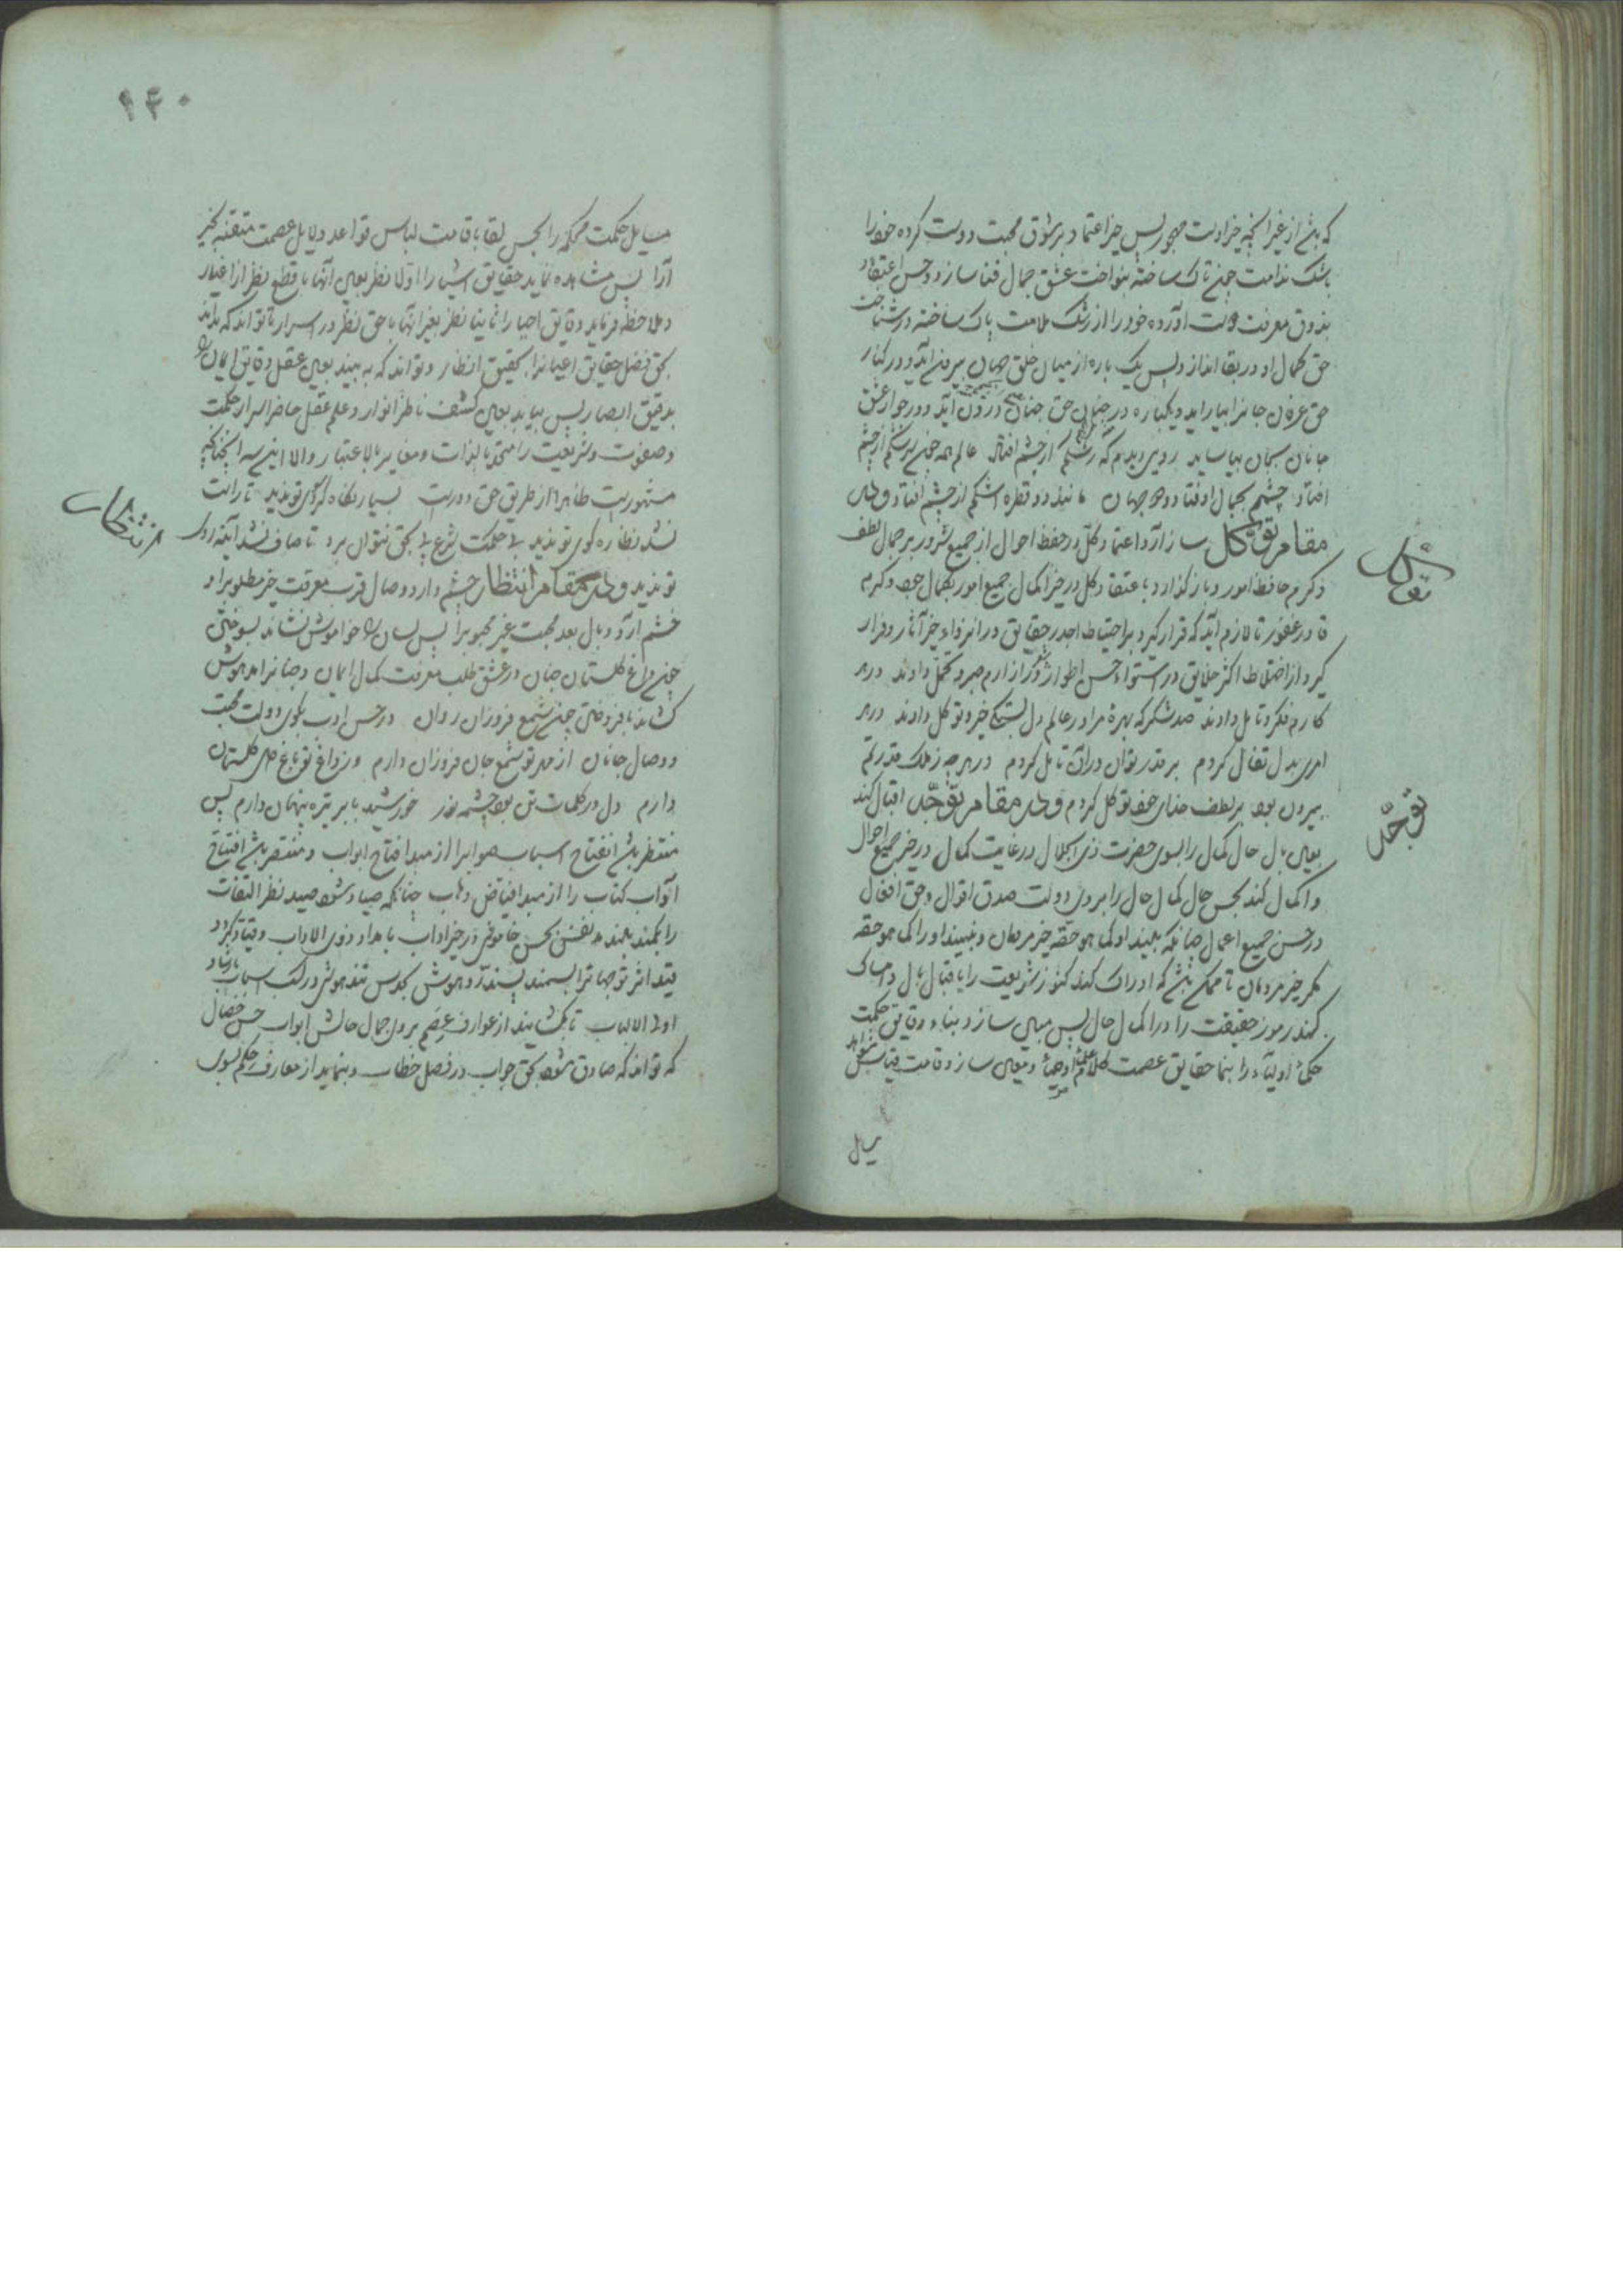 که باشد از غیر آنچه جز اوست مهجور پس جز اعتماد بر شوق محبت دوست کرده خود را
باشک ندامت چنین پاک ساخته بنواخت عشق جمال فنا سازد و حسن اعتقاد
بذوق معرفت دوست آورده خود را از زنگ ملامت پاک ساخته در شناخت
حق کمال او در بقا اندازد پس یک باره از میان خلق جهان بیرون آید و در کنار
حق عرفان جانرا بیاراید و یکباره در جنان حق درون آید و در جوار عشق
جانان سبحان بیاساید روی دیدم که رشکم از چشم افتاد عالم همه چون سرشکم از چشم
افتاد چشمم بجمال او فتاد و دو جهان مانند دو قطره اشکم از چشم افتاد ولی
مقام توکل ساز آرد اعتماد کل در حفظ احوال از جمیع شرور بر جمال لطف
و کرم حافظ امور و باز گذارد با عتقاد کل در خیر اکمال جمیع امور بکمال جود و کرم
قادر غفور تا لازم آید که قرار گیرد بر احتیاط اجدر حقایق در انزواء خیر آثار و فرار
گیرد از اختلاط اکثر خلایق در استواء حسن اطوار صبر و تحمل دادند در هر
کارم فکر و تامل دادند صد شکر که بهره مرا در عالم دل بستگی خرد و توکل دادند در هر
امری بدل تفال کردم بر قدر توان در آن تامل کردم در هر چه ز ملک قدرتم
بیرون بود بر لطف خدای خود توکل کردم ولی مقام توجه اقبال کند
بعین بال حال کمال را بسوی حضرت ذی الجلال در غایت کمال در خیر جمیع احوال
و اکمال کند بحسن حال کمال حال را بروی دولت صدق اقوال و حق افعال
در حسن جمیع اعمال چنانکه بلیند او کما هو حقه جز مردمان و نبیند او را کما هو حقه
مگر جز مردمان تا ممکن باشد که ادراک کند کنوز شریعت را باقبال بال و امساک
کند رموز حقیقت را در اکمال حال پس مبین سازد بناء دقایق حکمت
حکماء اولیاء را بنما حقایق عصمت علماء و معین سازد قامت
یل
توکل
توجه
۱۴۰
مسایل حکمت محکمه را بحسن لقا باقامت لباس قواعد دلایل عصمت متقنه بخیر
آرا پس مشاهده نماید حقایق اشیا را اولا نظر بعین آنها با قطع نظر از اغیار
و ملاحظه فرماید دقایق احیا را ثانیا نظر بغیر آنها با حق نظر در اسرار تا تواند که بداند
بحق فضل حقایق اعیانرا بحقیق انظار و تواند که به بیند بعین عقل دقایق ایمان را
بدقیق ابصار پس بیاید بعین کشف ناظر انوار و علم عقل حاضر اسرار حکمت
و صفوت و شریعت را متحد بالذات و مغایر بالاعتبار و الا این سه
مشهوریت ظاهرا از طریق حق دورست بسیار نگاه کردی تو ندید تا راست
نشد نظاره کوی تو ندید بی حکمت شرع پی بحق نتوان برد تا صاف نشد آینه روی
تو ندید ولی مقام انتظار چشم دارد وصال قرب معرفت خیر مطلوبرا و
خشم آرد و بال بعد محبت غیر محبوبرا پس لسان را خواموش نشاند بسوختن
چنین داغ گلستان جنان در عشق طلب معرفت کمال ایمان و جنانرا مدهوش
کشاند بافروختن چنین شمع فروزان روان در حسن ادب بکوی دولت محبت
و وصال جانان از مهر تو شمع جان فروزان دارم وز داغ تو باغ صد گلستان
دارم دل در ظلمات تن بود چشمه نور خورشید بابر تیره پنهان دارم پس
منتظر باشد انفتاح اسباب صوابرا از مبدا فتاح ابواب و منتصر باشد افتتاح
ابواب کتاب را از مبدا فیاض وهاب چنانکه صیاد شود صید نظر التفات
را بکمند بلند نفس بحسن خاموشی در خیر آداب بامداد ذوی الاداب و قیاد کردد
قید اثر توجها ترا بسمند پسند رو هوش بکوس تند هوشی در کسب اسباب بارشاد
اولی الالباب تا بکشایند از عوارف بروی جمال حالش ابواب حسن خصال
که تواند که صادق شود بحق جواب در فصل خطاب و بنماید از معارف حکم بسوی
انتظار